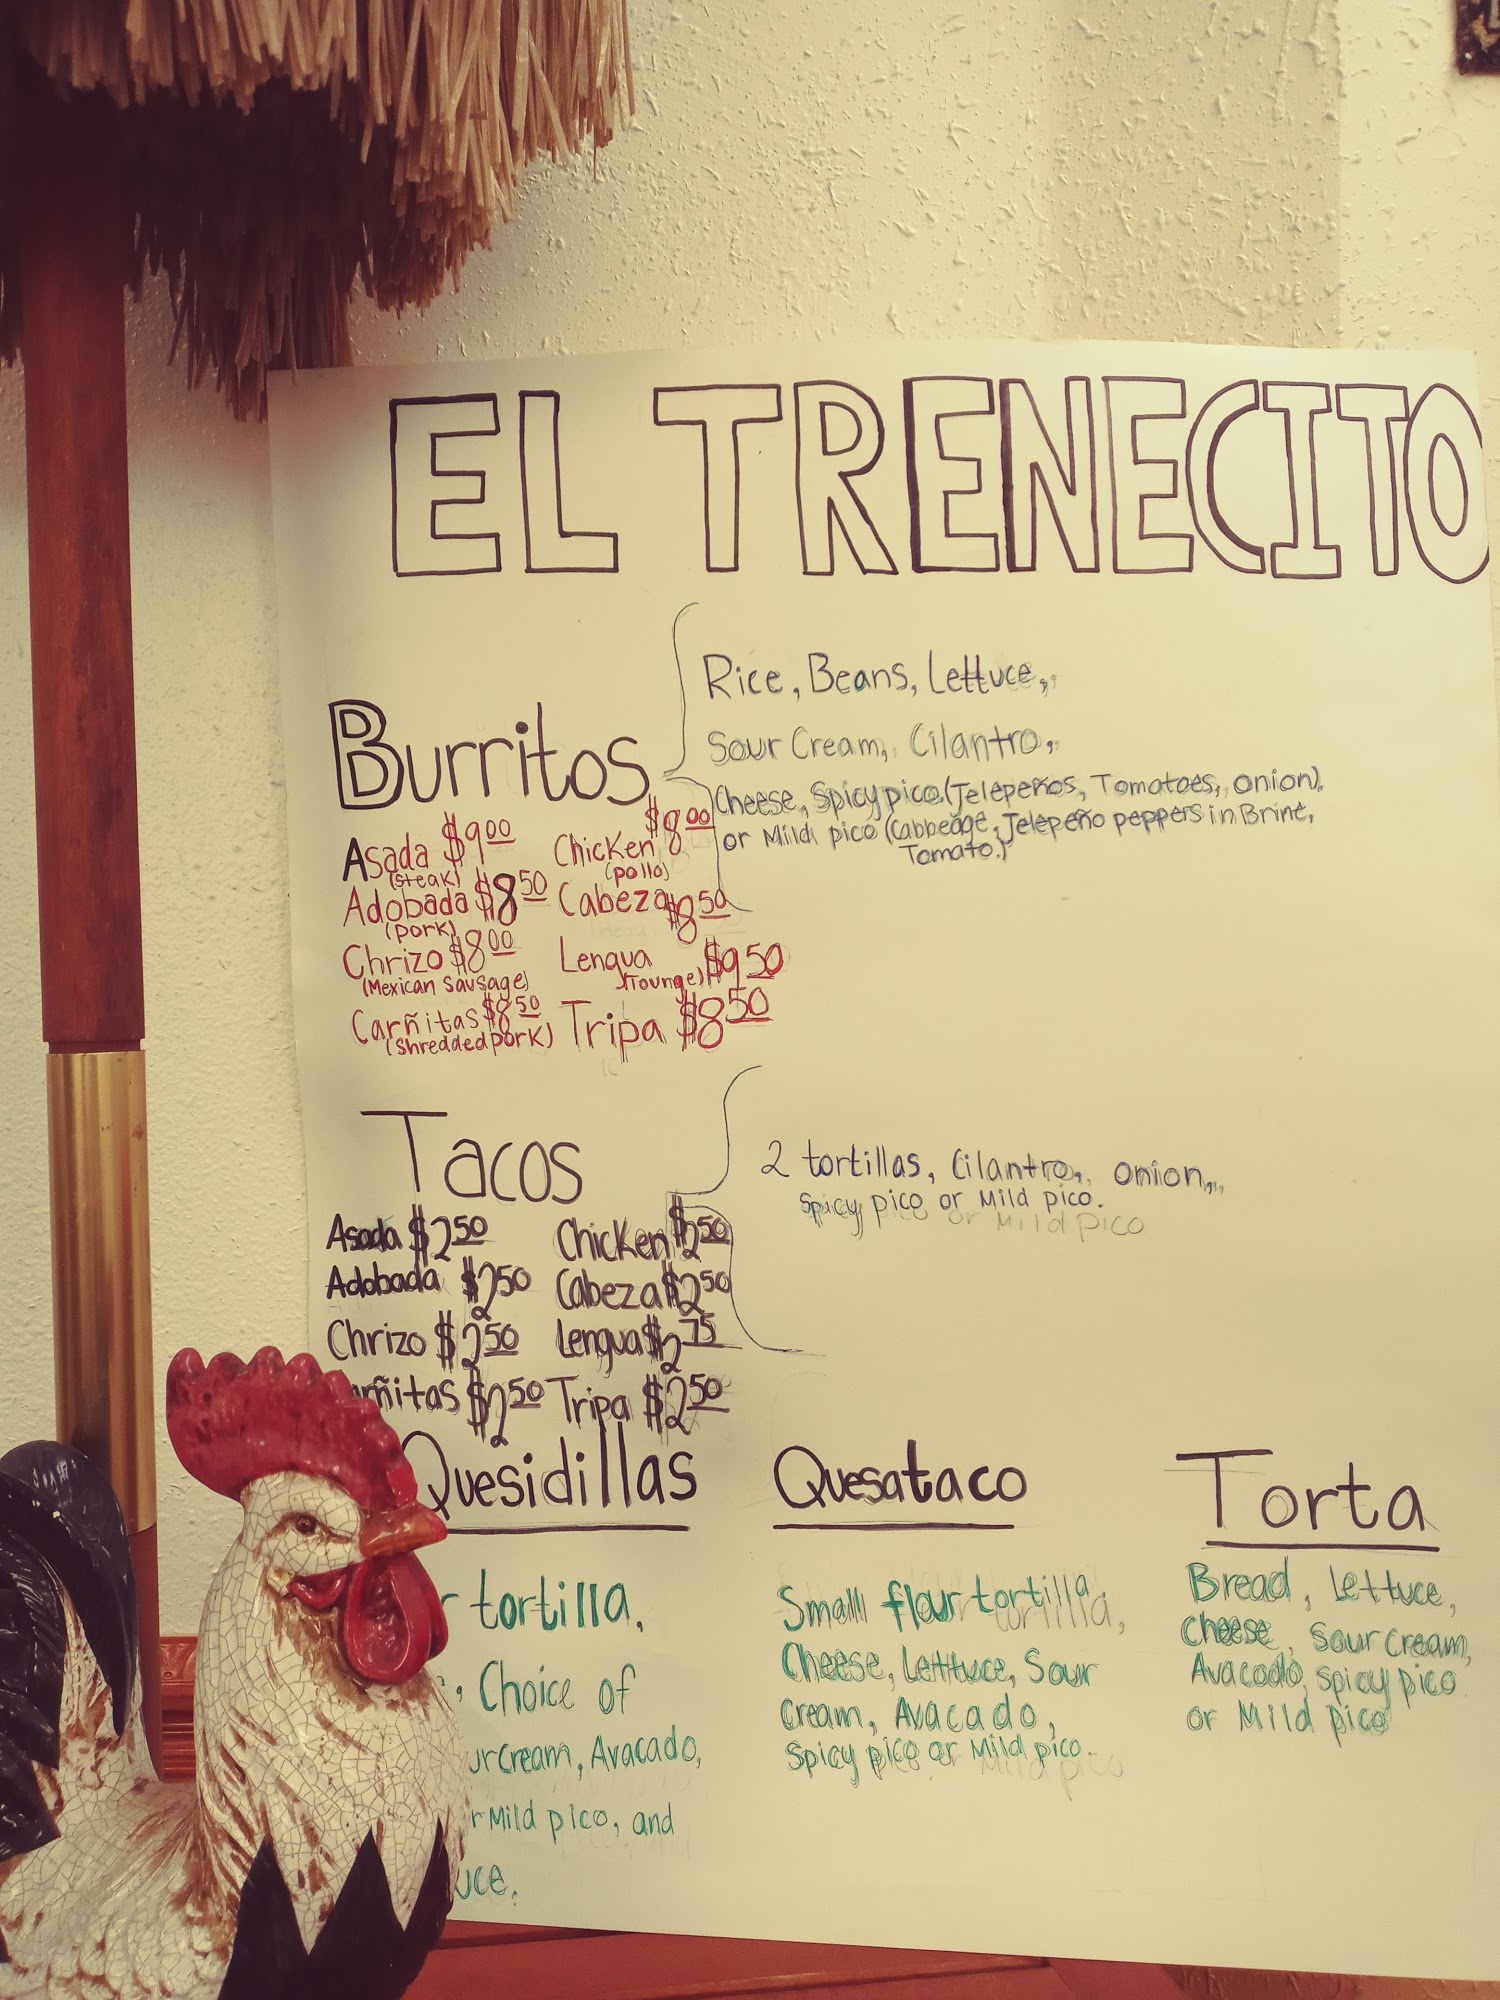 EL TRENECITO
Burritos
Rice, Beans, Lettuce,
Sour Cream, Cilantro,
Cheese, Spicy pico (Jelepeños, Tomatoes, onion)
or Mild pico (Cabbeage, Jelepeño peppers in Brine,
Tomato.)
Asada $9.00
(steak)
Adobada $8.50
(pork)
Chrizo $8.00
(Mexican Sausage)
Carñitas $8.50
(shredded pork)
Chicken $8.00
(pollo)
Cabeza $8.50
Lengua $9.50
(Tounge)
Tripa $8.50
Tacos
2 tortillas, Cilantro, onion,
Spicy pico or Mild pico.
Asada $2.50
Adobada $2.50
Chrizo $2.50
rñitas $2.50
Chicken $2.50
Cabeza $2.50
Lengua $2.75
Tripa $2.50
Quesidillas
r tortilla,
, Choice of
ur cream, Avacado,
r Mild pico, and
uce.
Quesataco
Small flour tortilla,
Cheese, Lettuce, Sour
Cream, Avacado,
Spicy pico or Mild pico.
Torta
Bread, Lettuce,
Cheese, Sour Cream,
Avacado, Spicy pico
or Mild pico